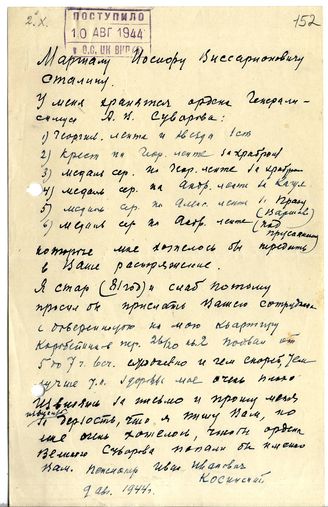 2.X.
ПОСТУПИЛО
10 АВГ 1944
в О.С. ЦК ВКП(б)
152
Маршалу Иосифу Виссарионовичу
Сталину.
У меня хранятся ордена Генерали-
ссимуса А. В. Суворова:
1) Георгия. лента и звезда 1 ст
2) Крест на Геор. ленте за храброс
3) медаль сер. на Геор. ленте за храброс
4) медаль сер. на Андр. ленте за
5) медаль сер. на Алекс. ленте за Прагу
(Варшав)
6) медаль сер. на Андр. ленте (над
пруссаками)
которые мне хотелось бы передать
в Ваше распоряжение.
Я стар (81 год) и слаб потому
просил бы прислать Вашего сотрудника
с доверенностью на мою квартиру
пер. подвал от
5 до 7 ч. веч. ежедневно и чем скорей, тем
лучше т.к. здоровье мое очень плохо
Извиняюсь за письмо и прошу меня
за дерзость, что я пишу Вам, но
мне очень хотелось, чтобы ордена
Великого Суворова попали бы именно
Вам. Иван Иванович
Косинский
9 авг. 1944 г.